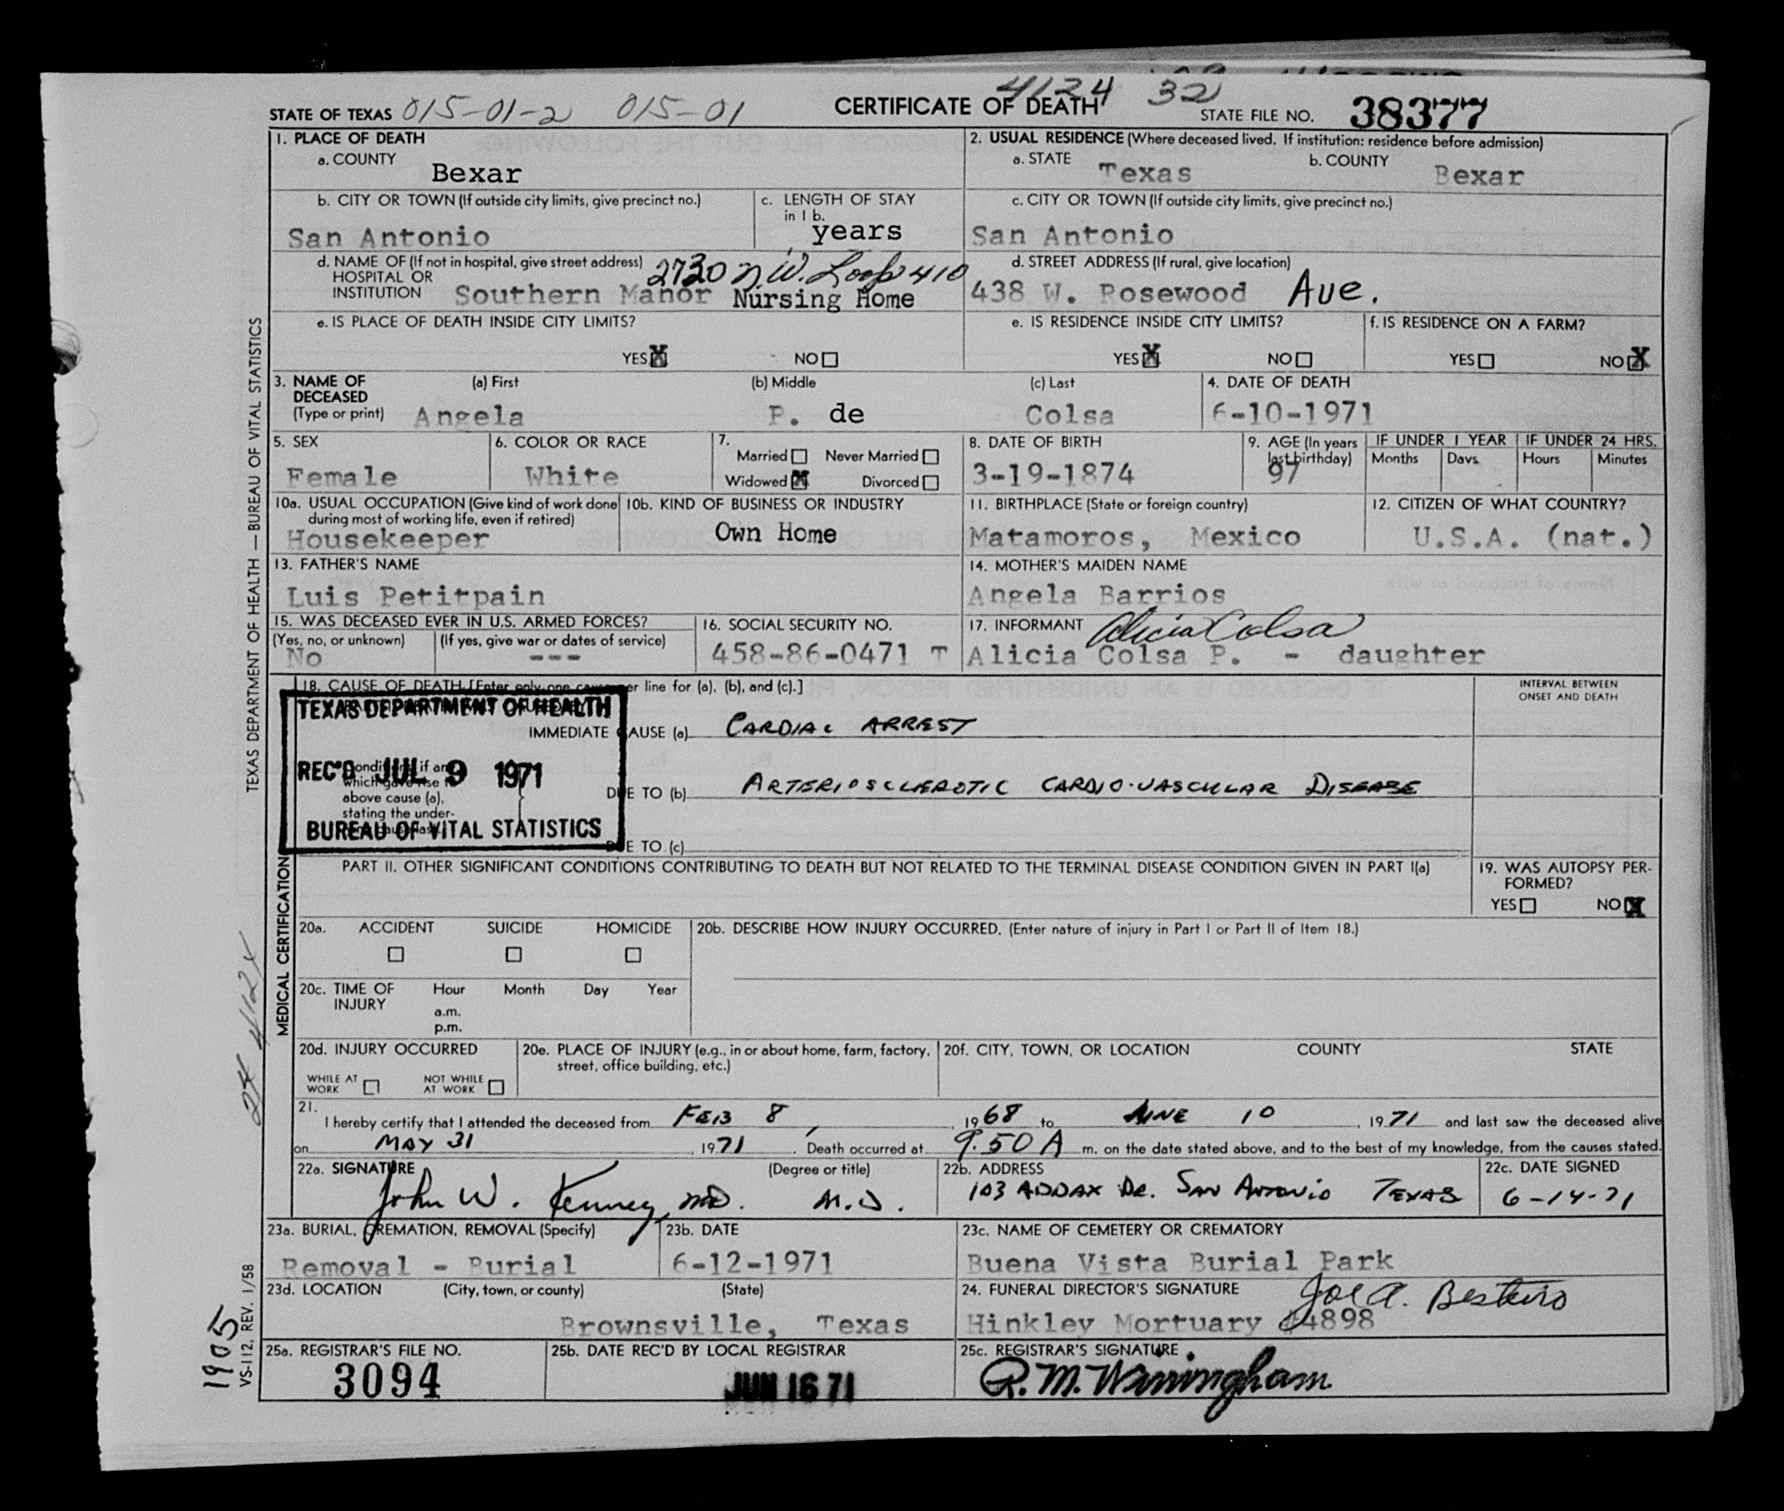 4124 32
STATE OF TEXAS 015-01-2 015-01 CERTIFICATE OF DEATH STATE FILE NO. 38377
1. PLACE OF DEATH
a. COUNTY
Bexar
2. USUAL RESIDENCE (Where deceased lived. If institution: residence before admission)
a. STATE b. COUNTY
Texas Bexar
b. CITY OR TOWN (If outside city limits, give precinct no.)
San Antonio
c. LENGTH OF STAY
in 1 b.
years
c. CITY OR TOWN (If outside city limits, give precinct no.)
San Antonio
d. NAME OF (If not in hospital, give street address)
HOSPITAL OR
INSTITUTION
2730 N.W. Loop 410
Southern Manor Nursing Home
d. STREET ADDRESS (If rural, give location)
438 W. Rosewood Ave.
e. IS PLACE OF DEATH INSIDE CITY LIMITS?
YES X NO
e. IS RESIDENCE INSIDE CITY LIMITS?
YES X NO
f. IS RESIDENCE ON A FARM?
YES NO X
3. NAME OF
DECEASED
(Type or print)
(a) First (b) Middle (c) Last
Angela P. de Colsa
4. DATE OF DEATH
6-10-1971
5. SEX
Female
6. COLOR OR RACE
White
7.
Married Never Married
Widowed X Divorced
8. DATE OF BIRTH
3-19-1874
9. AGE (In years
last birthday)
97
IF UNDER 1 YEAR IF UNDER 24 HRS.
Months Days Hours Minutes
10a. USUAL OCCUPATION (Give kind of work done
during most of working life, even if retired)
Housekeeper
10b. KIND OF BUSINESS OR INDUSTRY
Own Home
11. BIRTHPLACE (State or foreign country)
Matamoros, Mexico
12. CITIZEN OF WHAT COUNTRY?
U.S.A. (nat.)
13. FATHER'S NAME
Luis Petitpain
14. MOTHER'S MAIDEN NAME
Angela Barrios
15. WAS DECEASED EVER IN U.S. ARMED FORCES?
(Yes, no, or unknown) (If yes, give war or dates of service)
No ---
16. SOCIAL SECURITY NO.
458-86-0471 T
17. INFORMANT Alicia Colsa
Alicia Colsa P. - daughter
18. CAUSE OF DEATH [Enter only one cause per line for (a), (b), and (c).]
INTERVAL BETWEEN
ONSET AND DEATH
TEXAS DEPARTMENT OF HEALTH
REC'D JUL 9 1971
BUREAU OF VITAL STATISTICS
IMMEDIATE CAUSE (a) CARDIAC ARREST
Conditions, if any,
which gave rise to
above cause (a),
stating the under-
DUE TO (b) ARTERIOSCLEROTIC CARDIO-VASCULAR DISEASE
DUE TO (c)
PART II. OTHER SIGNIFICANT CONDITIONS CONTRIBUTING TO DEATH BUT NOT RELATED TO THE TERMINAL DISEASE CONDITION GIVEN IN PART I(a)
19. WAS AUTOPSY PER-
FORMED?
YES NO X
20a. ACCIDENT SUICIDE HOMICIDE
20b. DESCRIBE HOW INJURY OCCURRED. (Enter nature of injury in Part I or Part II of Item 18.)
20c. TIME OF
INJURY
Hour Month Day Year
a.m.
p.m.
20d. INJURY OCCURRED
WHILE AT
WORK
NOT WHILE
AT WORK
20e. PLACE OF INJURY (e.g., in or about home, farm, factory,
street, office building, etc.)
20f. CITY, TOWN, OR LOCATION COUNTY STATE
21.
I hereby certify that I attended the deceased from FEB 8, 1968 to JUNE 10, 1971 and last saw the deceased alive
on MAY 31 1971. Death occurred at 9:50 A m. on the date stated above, and to the best of my knowledge, from the causes stated.
22a. SIGNATURE (Degree or title)
John W. Kenney, MD. M.D.
22b. ADDRESS
103 ADDAX DR. SAN ANTONIO TEXAS
22c. DATE SIGNED
6-14-71
23a. BURIAL, CREMATION, REMOVAL (Specify)
Removal - Burial
23b. DATE
6-12-1971
23c. NAME OF CEMETERY OR CREMATORY
Buena Vista Burial Park
23d. LOCATION (City, town, or county) (State)
Brownsville, Texas
24. FUNERAL DIRECTOR'S SIGNATURE Joe A. Besteiro
Hinkley Mortuary #4898
25a. REGISTRAR'S FILE NO.
3094
25b. DATE REC'D BY LOCAL REGISTRAR
JUN 16 71
25c. REGISTRAR'S SIGNATURE
R.M. Winingham
TEXAS DEPARTMENT OF HEALTH — BUREAU OF VITAL STATISTICS
MEDICAL CERTIFICATION
VS-112, REV. 1/58
1905